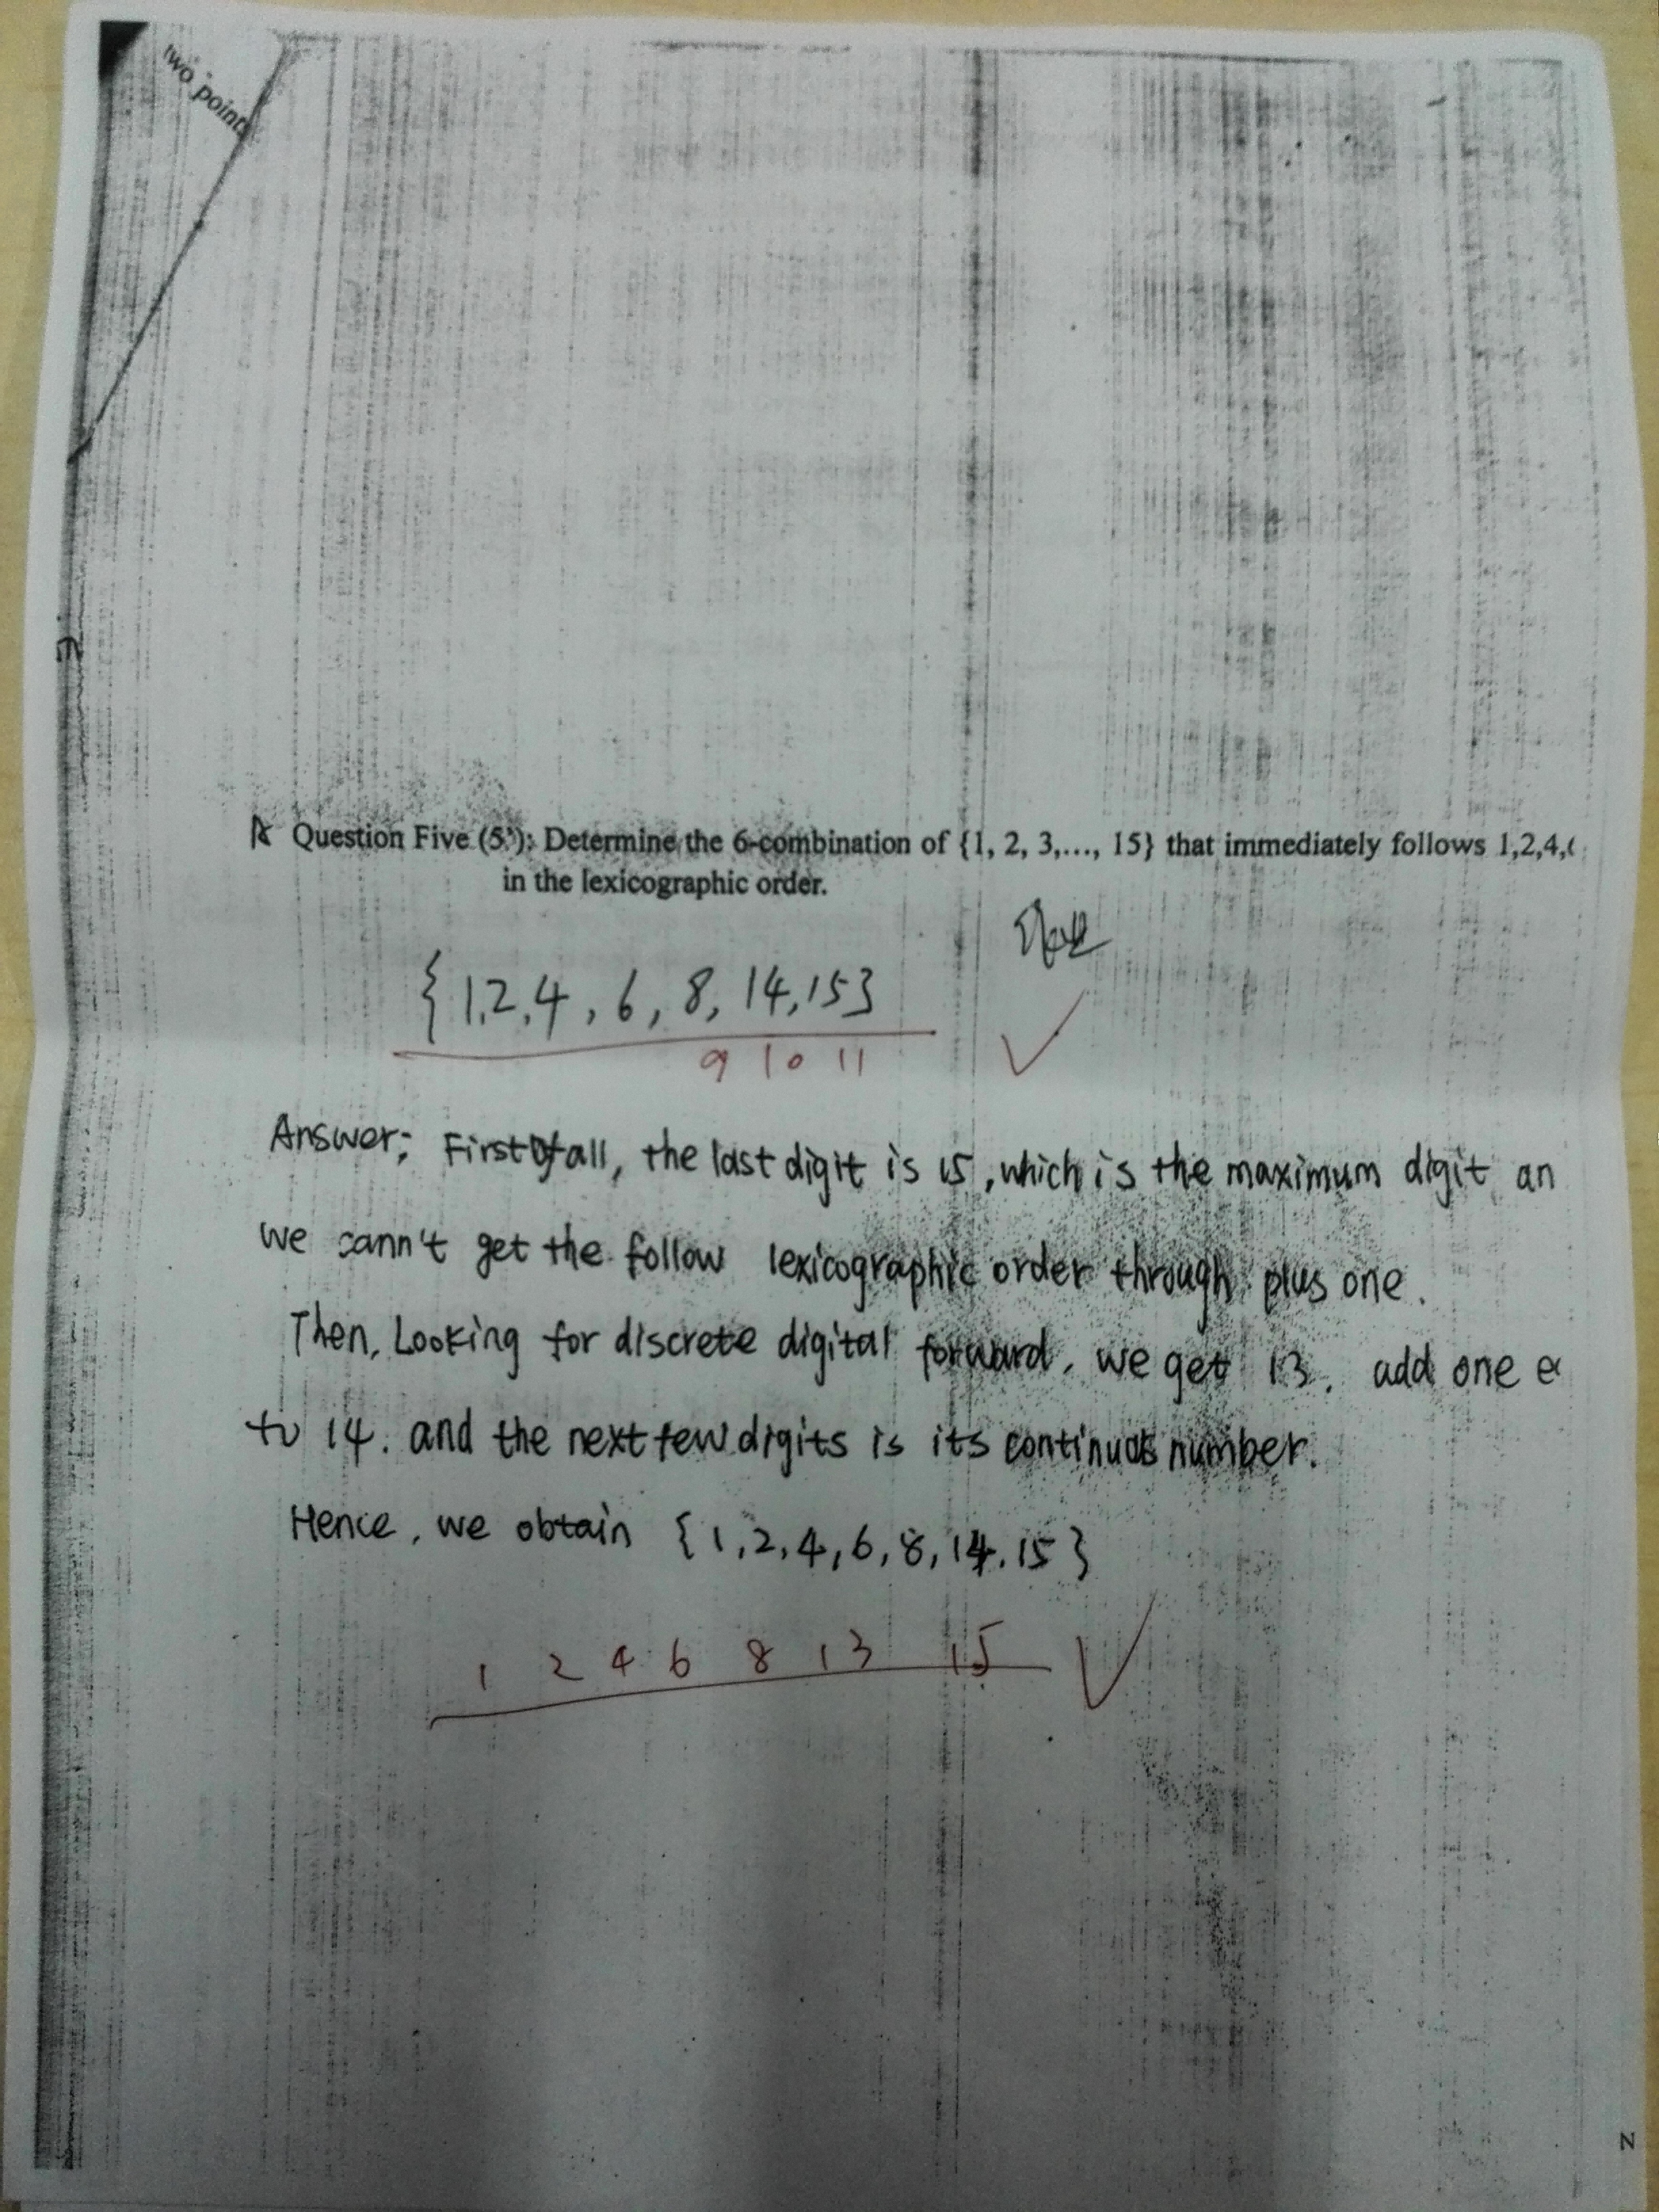 two point
Question Five (5'): Determine the 6-combination of {1, 2, 3,..., 15} that immediately follows 1,2,4,
in the lexicographic order.
{1,2,4,6,8,14,15}
9 10 11
Answer: First of all, the last digit is 15, which is the maximum digit an
we cann't get the follow lexicographic order through plus one.
Then, Looking for discrete digital forward, we get 13. add one
to 14. and the next few digits is its continuous number.
Hence, we obtain {1,2,4,6,8,14,15}
1 2 4 6 8 13 15
N